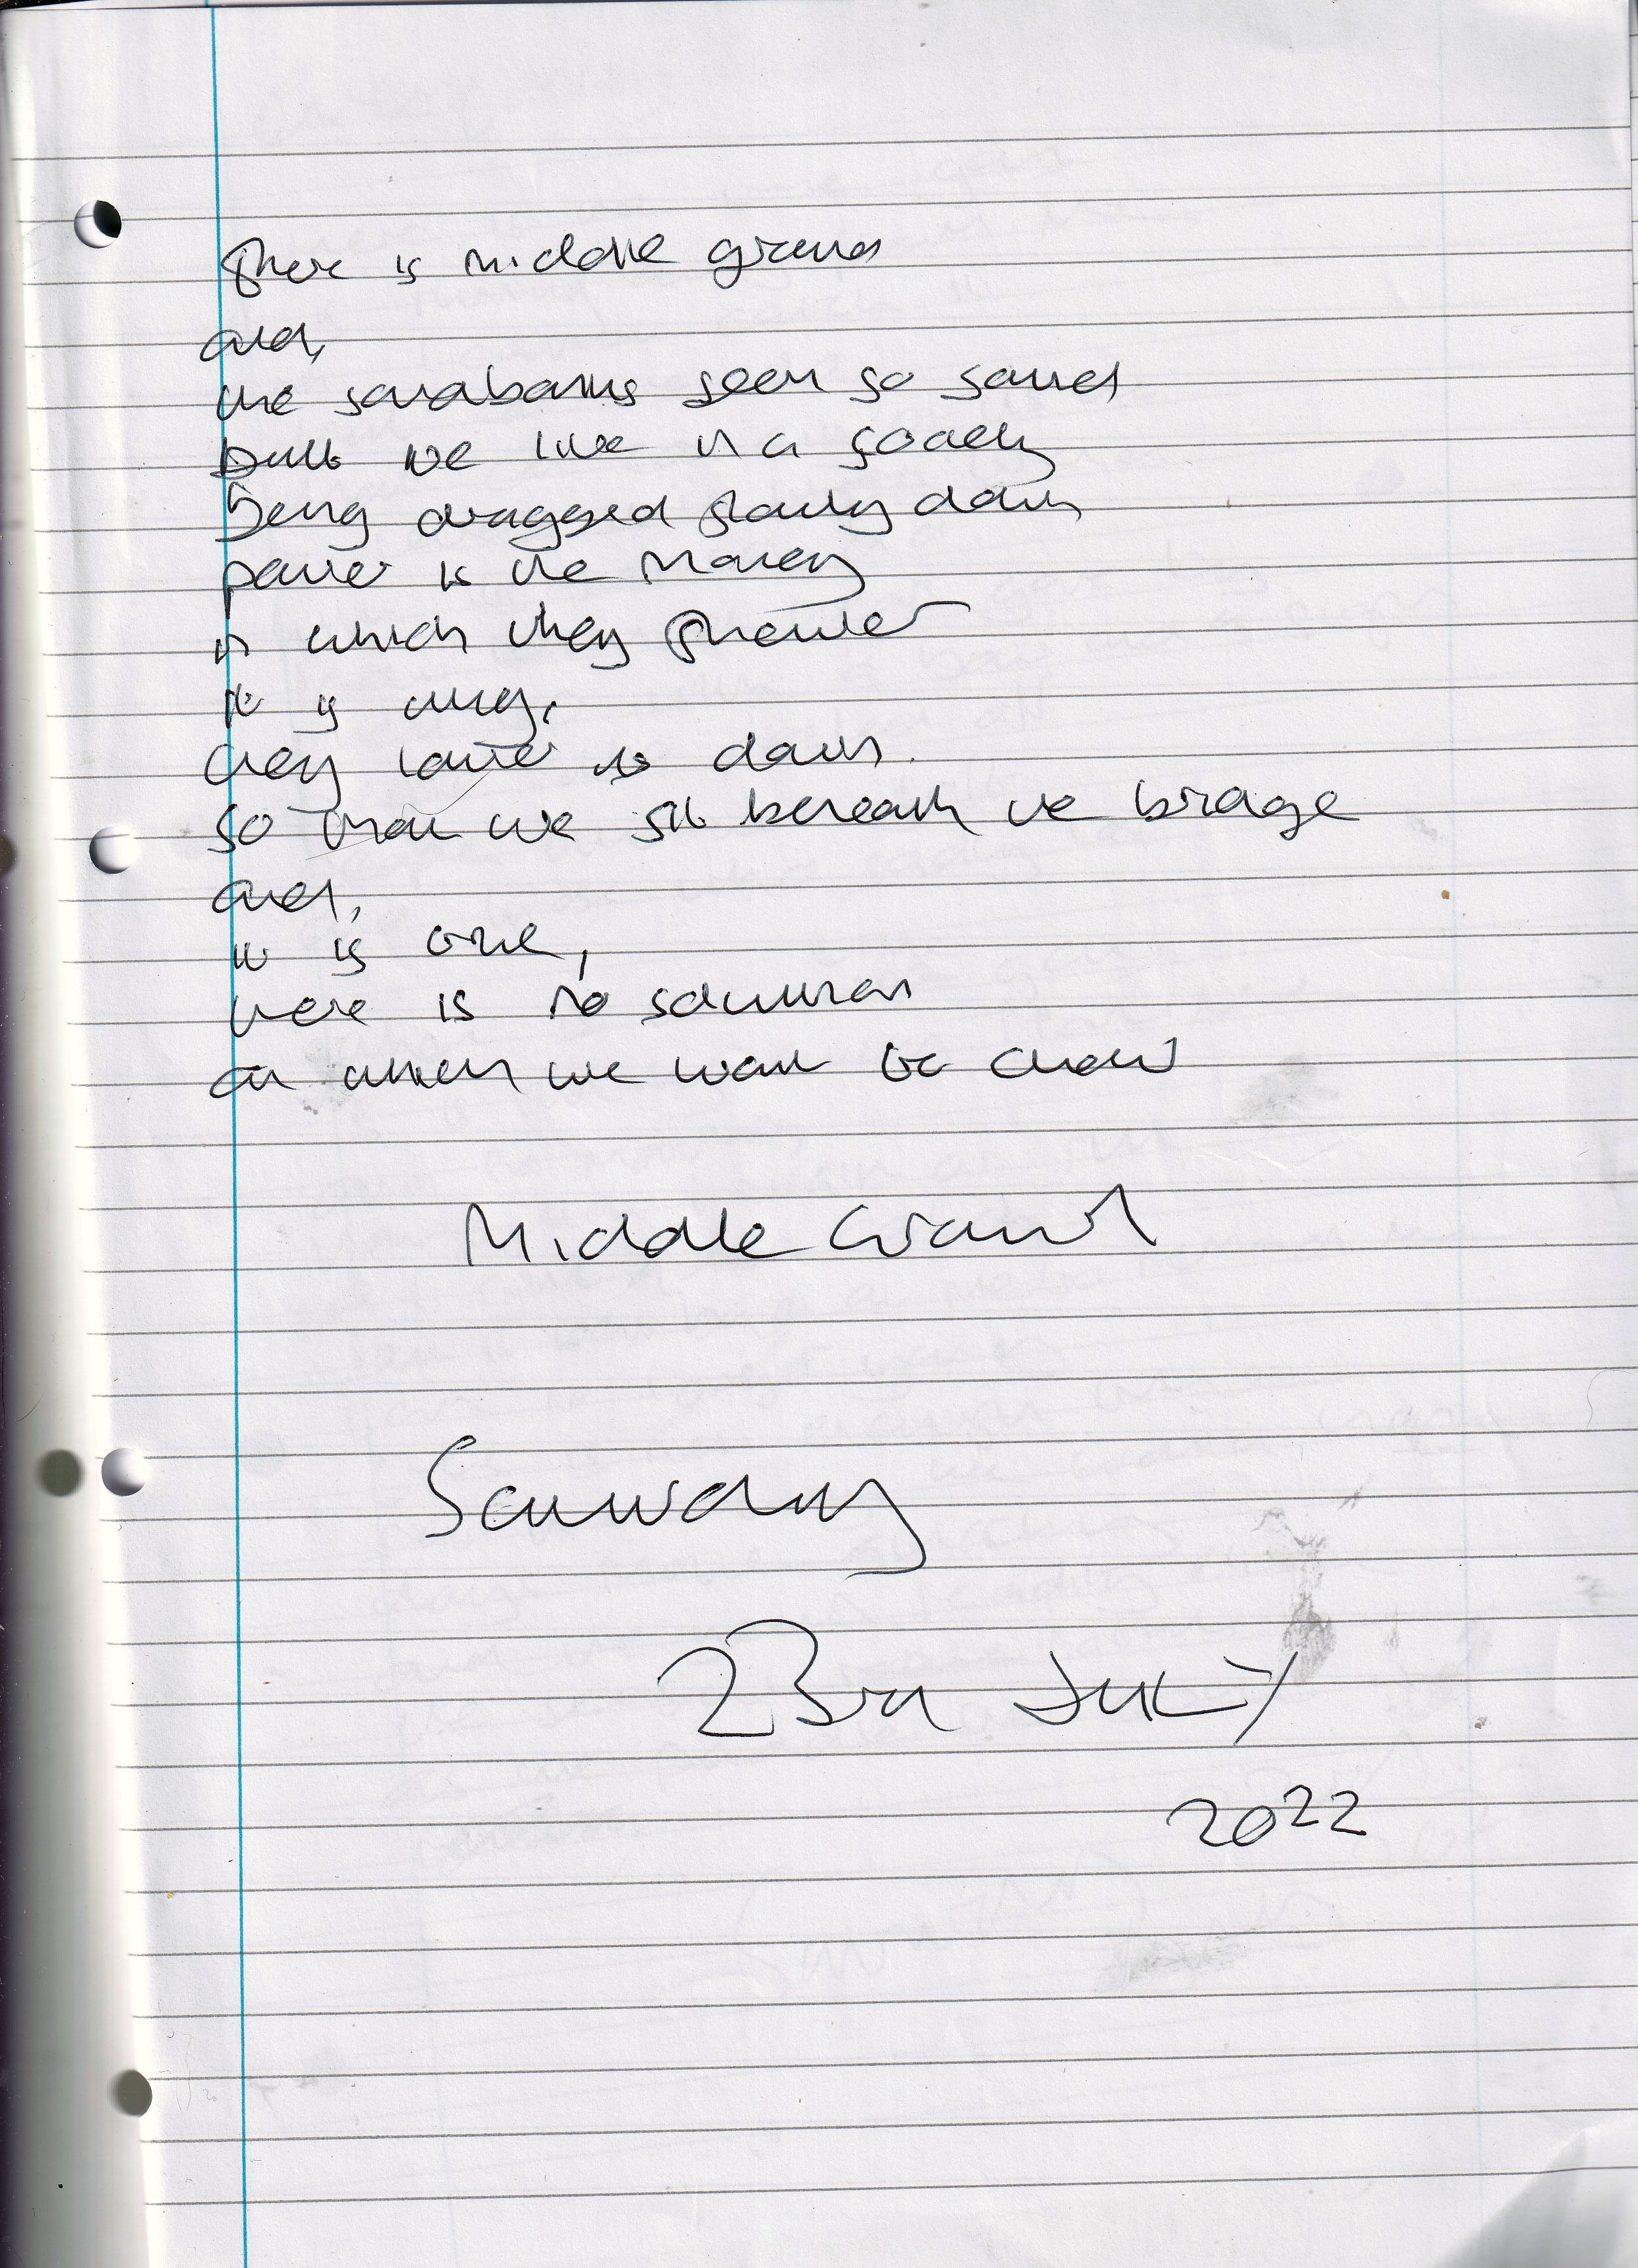 There is middle ground
and,
the seem so sound
but we live in a society
being dragged slowly down
power is the money
in which they
it is ugly,
they lower us down.
so that we sit beneath the bridge
and,
it is true,
there is no solution
on which we want to chew
Middle Ground
Saturday
23rd JULY
2022